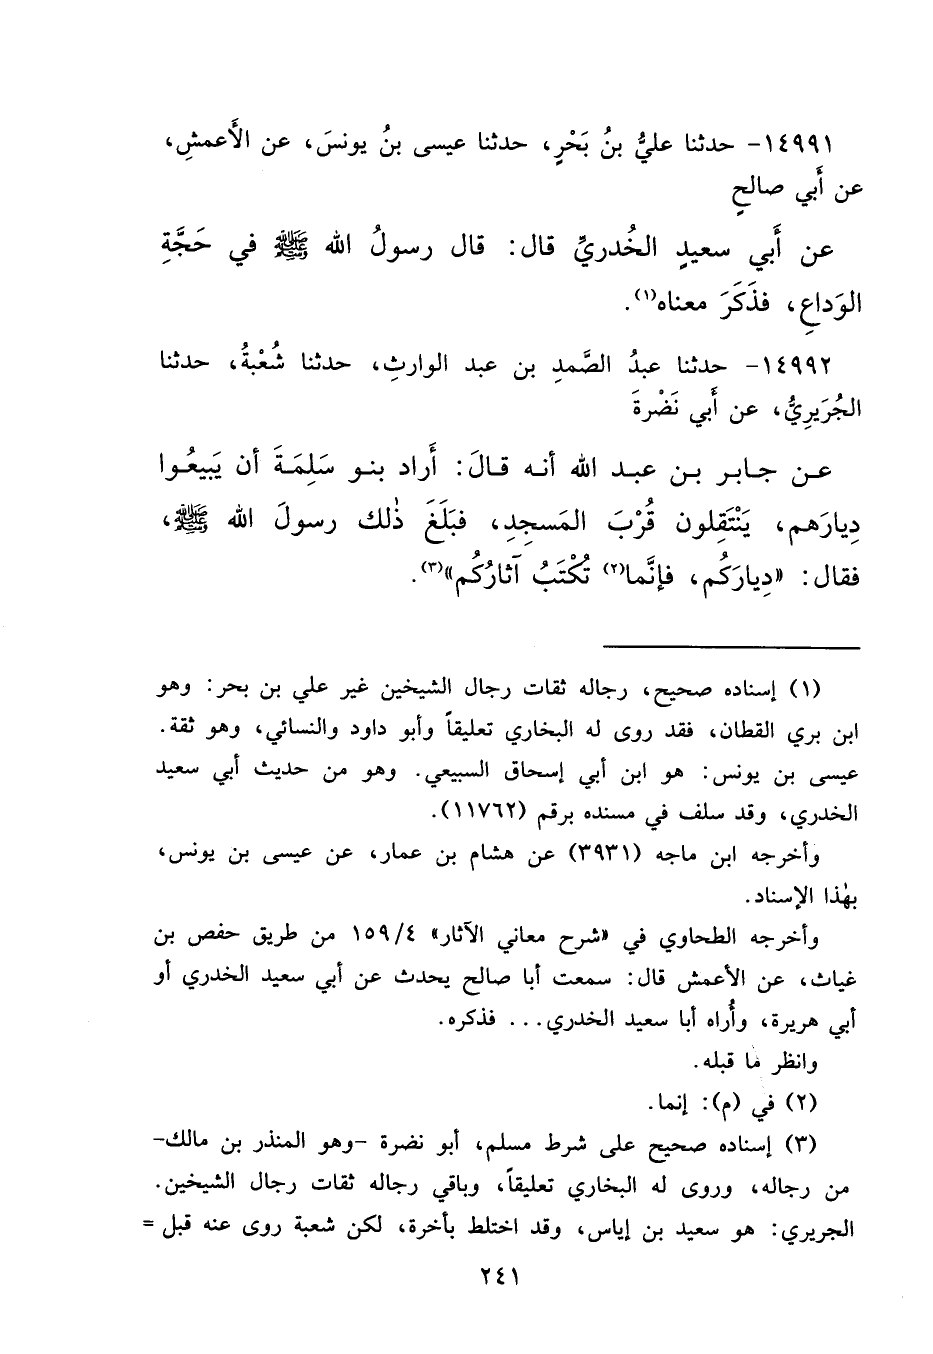 ١٤٩٩١- حدثنا عليُّ بنُ بَحْرٍ، حدثنا عيسى بنُ يونسَ، عن الأَعمشِ،
عن أَبي صالحٍ
عن أَبي سعيدٍ الخُدريِّ قال: قال رسولُ الله ﷺ في حَجَّةِ
الوَداعِ، فذَكَرَ معناه(١).
١٤٩٩٢- حدثنا عبدُ الصَّمدِ بن عبد الوارثِ، حدثنا شُعْبةُ، حدثنا
الجُرَيرِيُّ، عن أَبي نَضْرةَ
عن جابر بن عبد الله أنه قالَ: أَراد بنو سَلِمَةَ أن يَبيعُوا
دِيارَهم، يَنْتَقِلون قُرْبَ المَسجِدِ، فبَلَغَ ذٰلك رسولَ الله ﷺ،
فقال: «دِيارَكُم، فإنَّما(٢) تُكْتَبُ آثارُكُم»(٣).
(١) إسناده صحيح، رجاله ثقات رجال الشيخين غير علي بن بحر: وهو
ابن بري القطان، فقد روى له البخاري تعليقاً وأبو داود والنسائي، وهو ثقة.
عيسى بن يونس: هو ابن أبي إسحاق السبيعي. وهو من حديث أبي سعيد
الخدري، وقد سلف في مسنده برقم (١١٧٦٢).
وأخرجه ابن ماجه (٣٩٣١) عن هشام بن عمار، عن عيسى بن يونس،
بهٰذا الإسناد.
وأخرجه الطحاوي في «شرح معاني الآثار» ١٥٩/٤ من طريق حفص بن
غياث، عن الأعمش قال: سمعت أبا صالح يحدث عن أبي سعيد الخدري أو
أبي هريرة، وأُراه أبا سعيد الخدري... فذكره.
وانظر ما قبله.
(٢) في (م): إنما.
(٣) إسناده صحيح على شرط مسلم، أبو نضرة -وهو المنذر بن مالك-
من رجاله، وروى له البخاري تعليقاً، وباقي رجاله ثقات رجال الشيخين.
الجريري: هو سعيد بن إياس، وقد اختلط بأخرة، لكن شعبة روى عنه قبل =
٢٤١